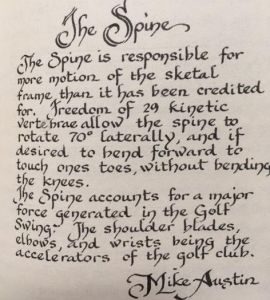 The Spine
The Spine is responsible for
more motion of the sketal
frame, than it has been credited
for. Freedom of 29 kinetic
vertebrae allow the spine to
rotate 70° laterally, and if
desired to bend forward to
touch ones toes, without bending
the knees.
The Spine accounts for a major
force generated in the Golf
Swing. The shoulder blades,
elbows, and wrists being the
accelerators of the golf club.
Mike Austin